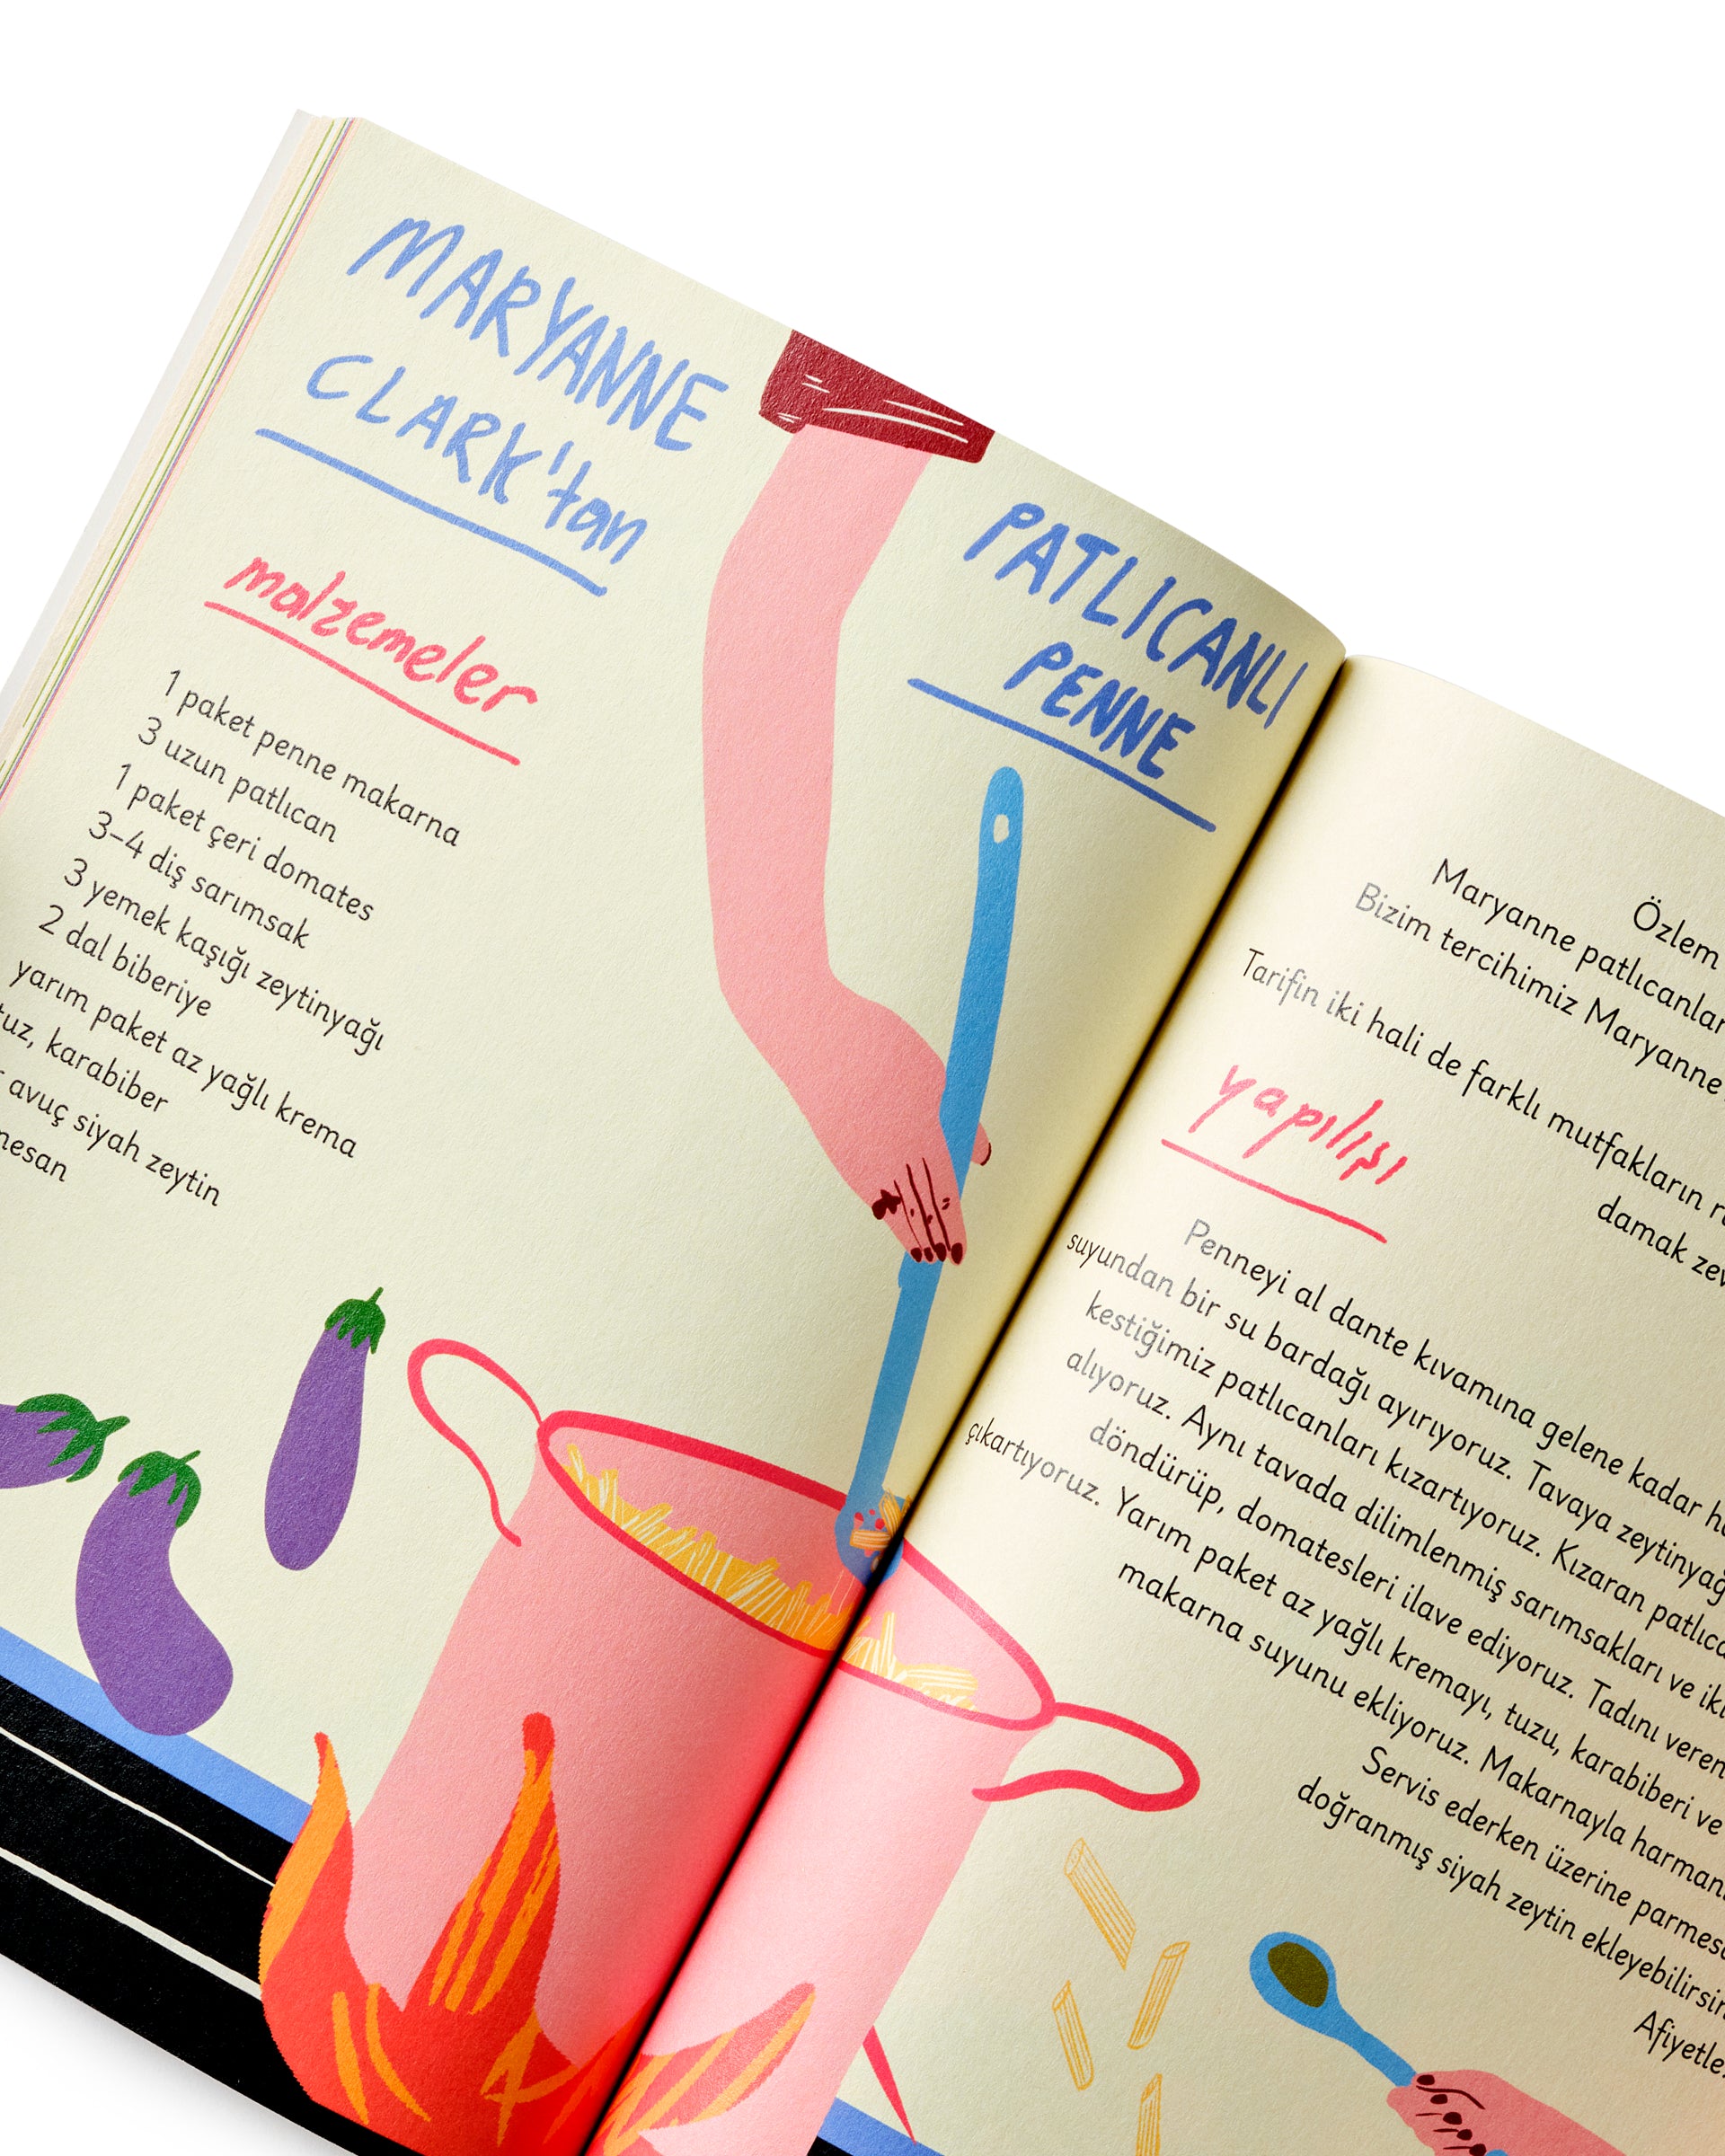 MARYANNE
CLARK'tan
PATLICANLI
PENNE
malzemeler
1 paket penne makarna
3 uzun patlıcan
1 paket çeri domates
3-4 diş sarımsak
3 yemek kaşığı zeytinyağı
2 dal biberiye
yarım paket az yağlı krema
karabiber
avuç siyah zeytin
Özlem
Maryanne
Bizim tercihimiz Maryanne
Tarifin iki hali de farklı mutfakların
damak
yapılışı
Penneyi al dante kıvamına gelene kadar
suyundan bir su bardağı ayırıyoruz. Tavaya
kestiğimiz patlıcanları kızartıyoruz. Kızaran
alıyoruz. Aynı tavada dilimlenmiş sarımsakları ve
döndürüp, domatesleri ilave ediyoruz. Tadını
çıkartıyoruz. Yarım paket az yağlı kremayı, tuzu, karabiberi ve
makarna suyunu ekliyoruz. Makarnayla
Servis ederken üzerine
doğranmış siyah zeytin